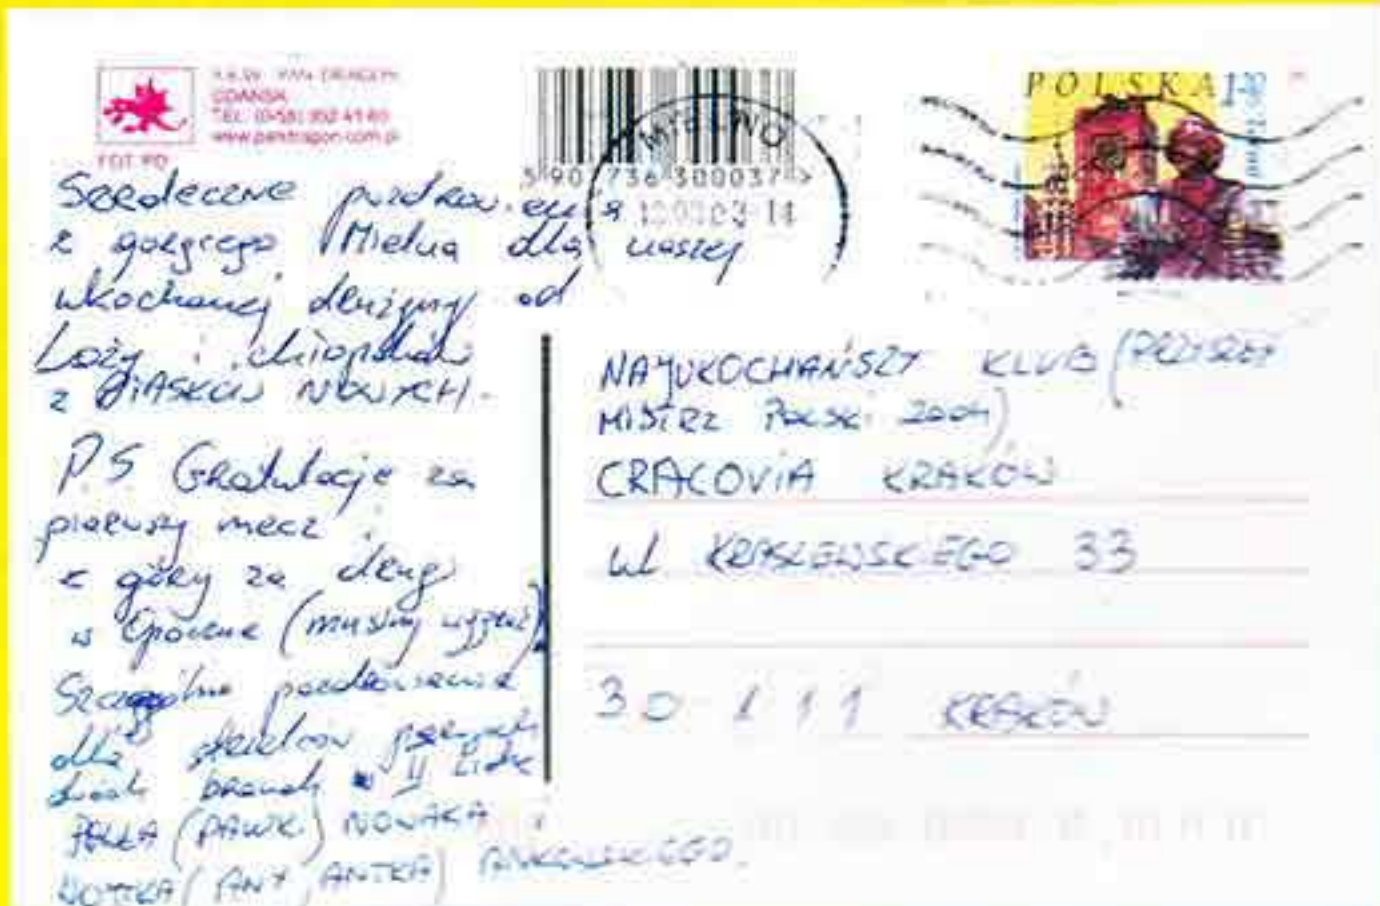 GDAŃSK
www.pandragon.com.pl
FOT PD
5 901736 300037 >
MIELNO
14
POLSKA
Serdeczne pozdrowienia
z gorącego Mielna dla naszej
ukochanej drużyny od
Loży i chłopaków
z PIASKÓW NOWYCH.
P.S Gratulacje za
pierwszy mecz i
z góry za drugi
w Opocznie (musimy wygrać)
Szczególne pozdrowienia
dla strzelców pierwszych
dwóch bramek w II Lidze
(PAWKI) NOWAKA i
NAJUKOCHAŃSZY KLUB (PRZYSZŁY
MISTRZ Polski 2004)
CRACOVIA KRAKÓW
ul KRASZEWSKIEGO 33
30 111 KRAKÓW